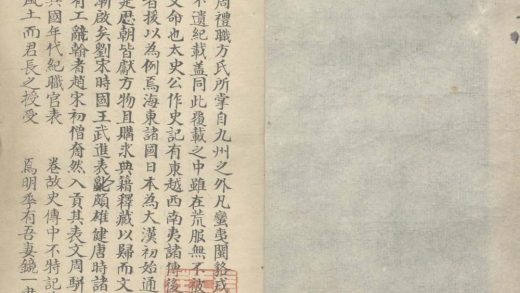 周禮職方氏所掌自九州之外凡蠻夷閩貉戎
不遺紀載蓋同此覆載之中雖在荒服無不被
文命也太史公作史記有東越西南夷諸傳後
者援以為例焉海東諸國日本為大漢初始通
是歷朝皆獻方物且購求典籍釋藏以歸而文
漸啟矣劉宋時國王武進表辭頗雄健唐時諸
有工辭翰者趙宋初僧奝然入貢其表文周駢
其國年代紀職官表 卷故史傳中不特記
風土而君長之授受 焉明季有吾妻鏡一書